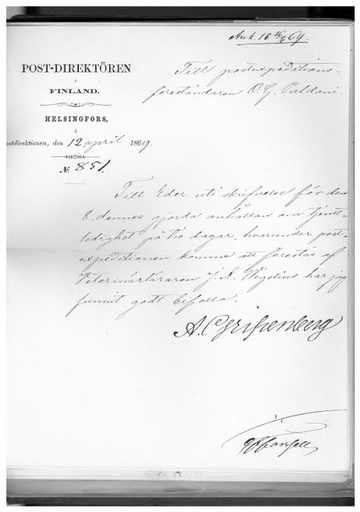 Ank. 18 16/4 69.
POST-DIREKTÖREN
i
FINLAND.
HELSINGFORS,
å
ostdirektionen, den 12 april 1869.
№ 851.
Till postexpeditions-
föreståndaren O. G. Caldani.
Till Eder uti skrifvelse för den
8 dennes gjorda anhållan om tjenst-
ledighet på tio dagar, hvarunder post-
expeditionen komme att förestås af
Veterinärläraren J. A. Wegelius har jag
funnit godt bifalla.
A. Gripenberg